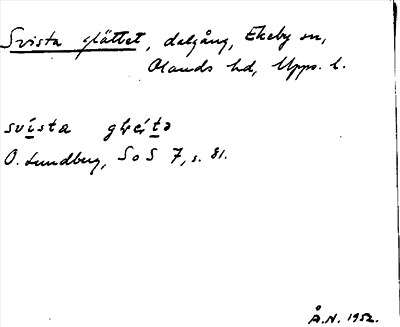 Svista slättet, dalgång, Ekeby sn,
Olands hd, Upps. l.
svista
O. Lundberg, SoS 7, s. 81.
Å.N. 1952.